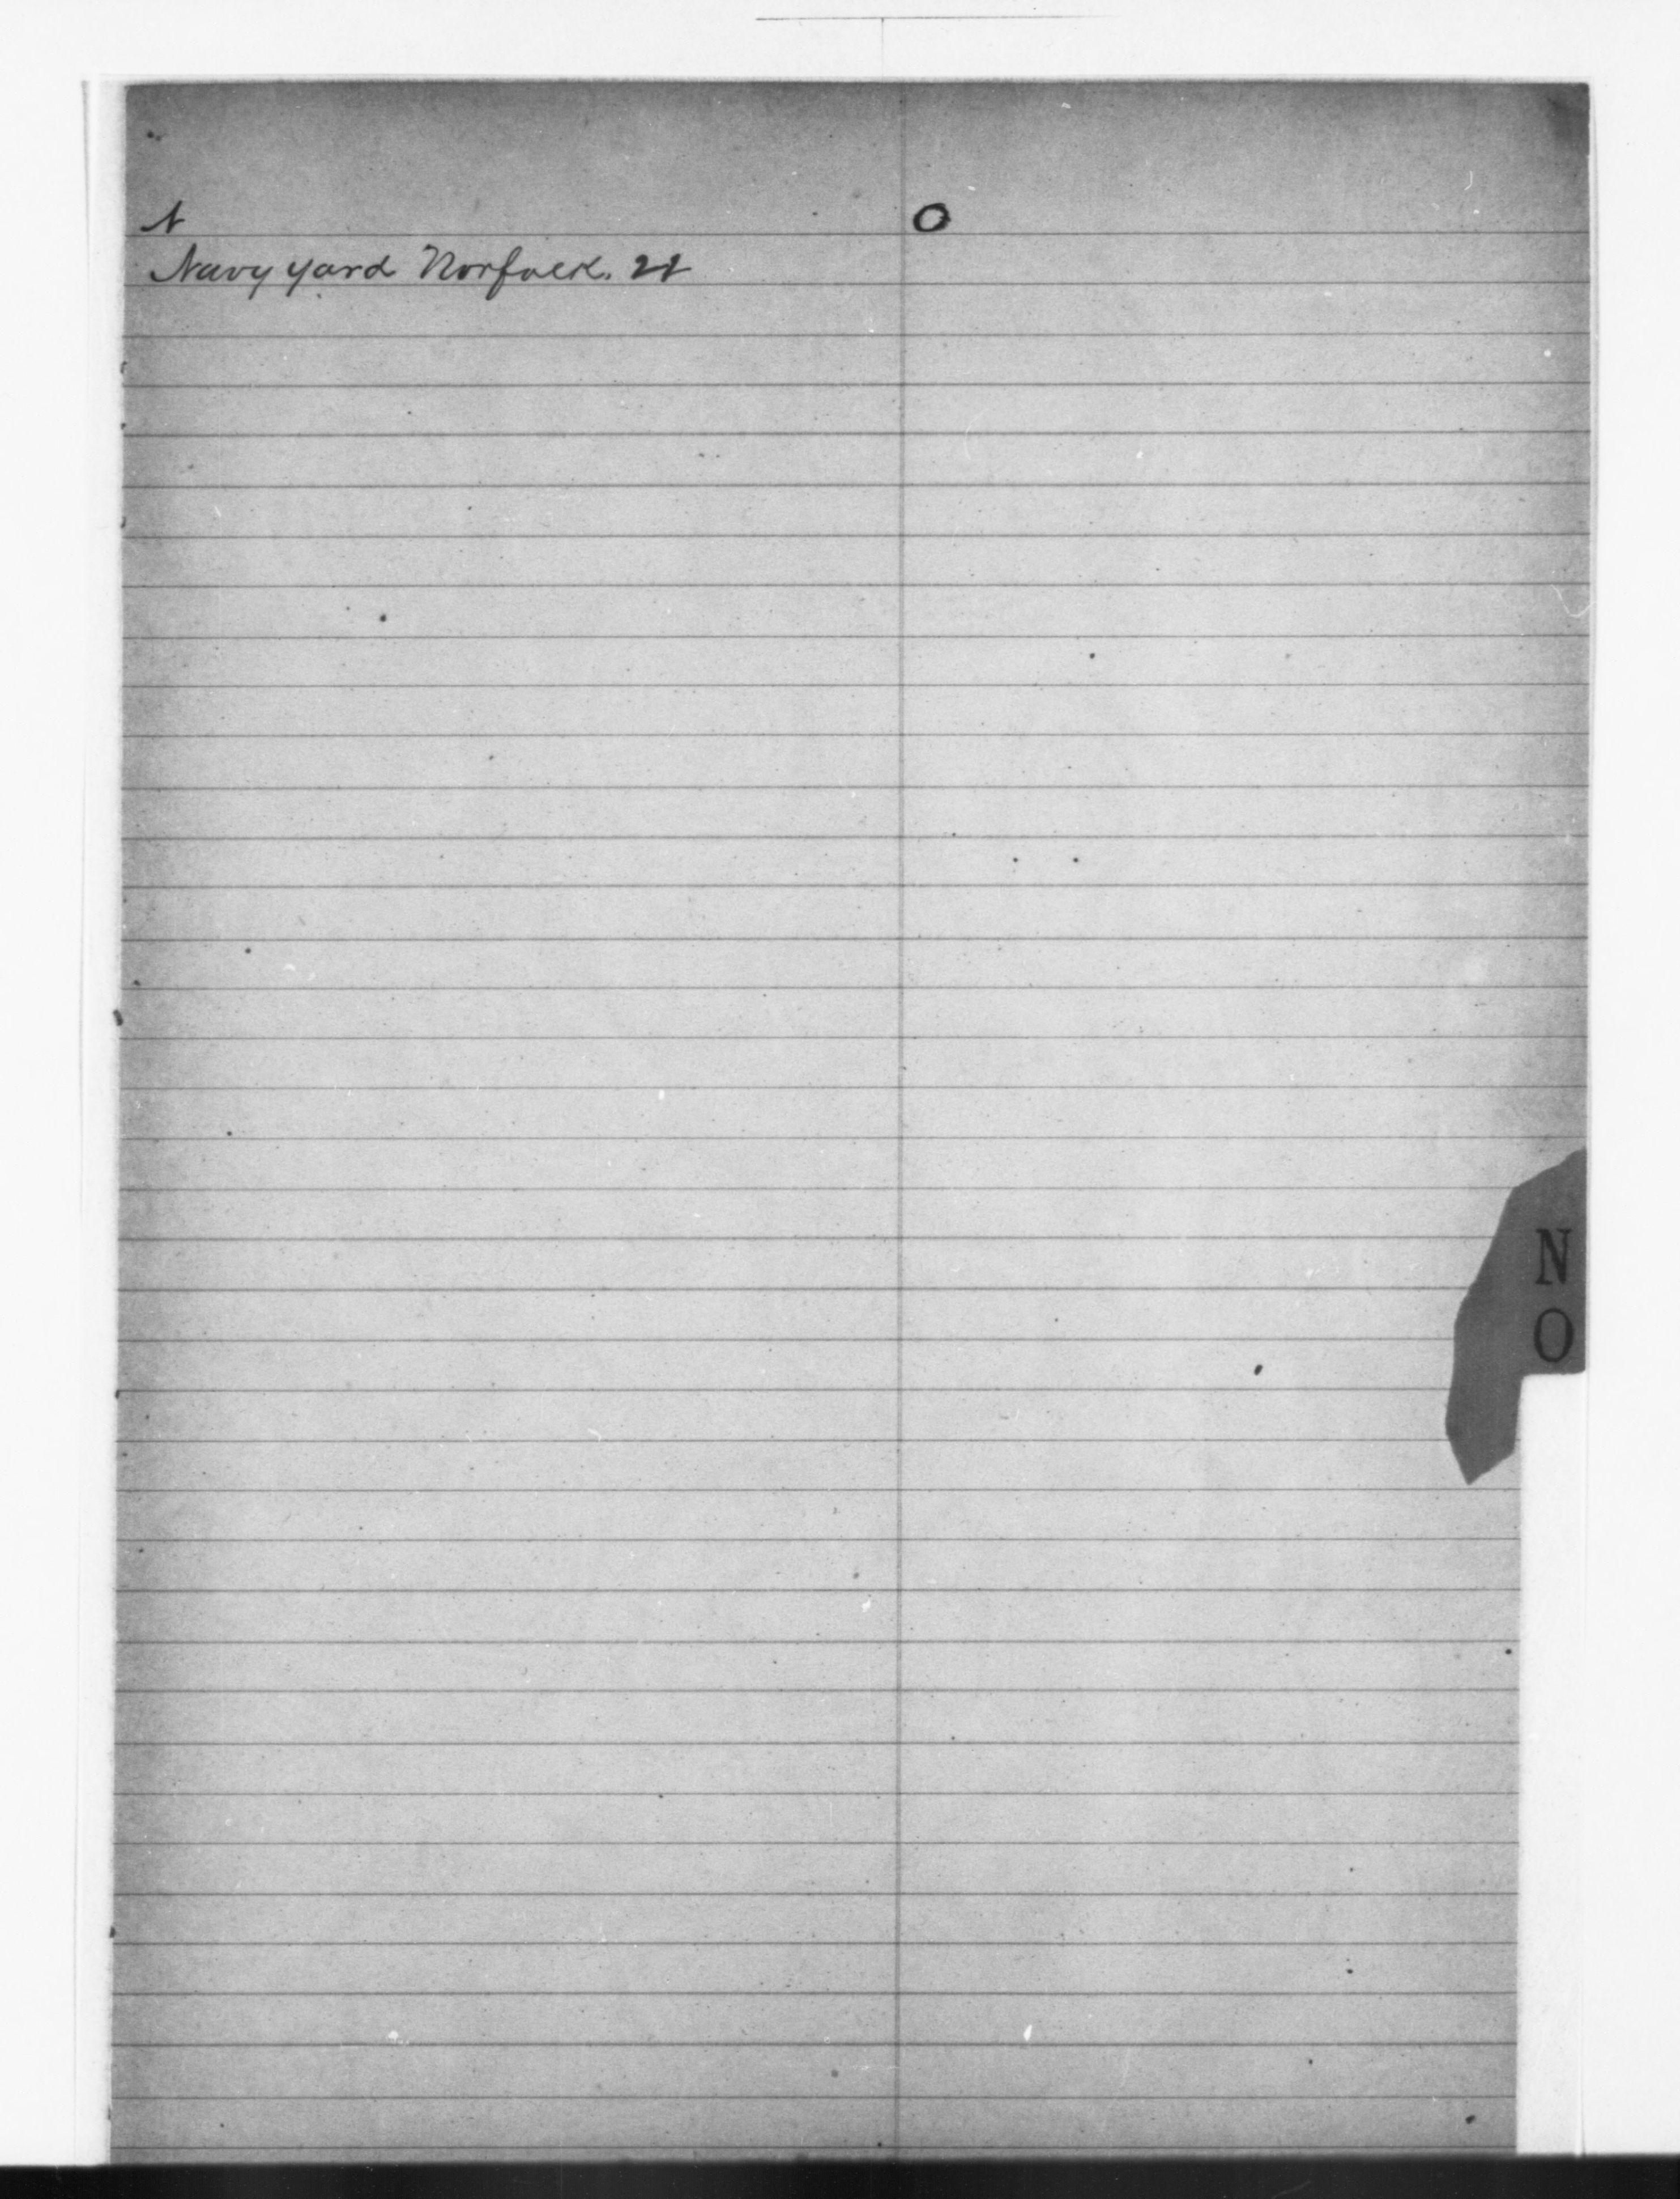 N
Navy yard Norfolk. 22
O
N
O